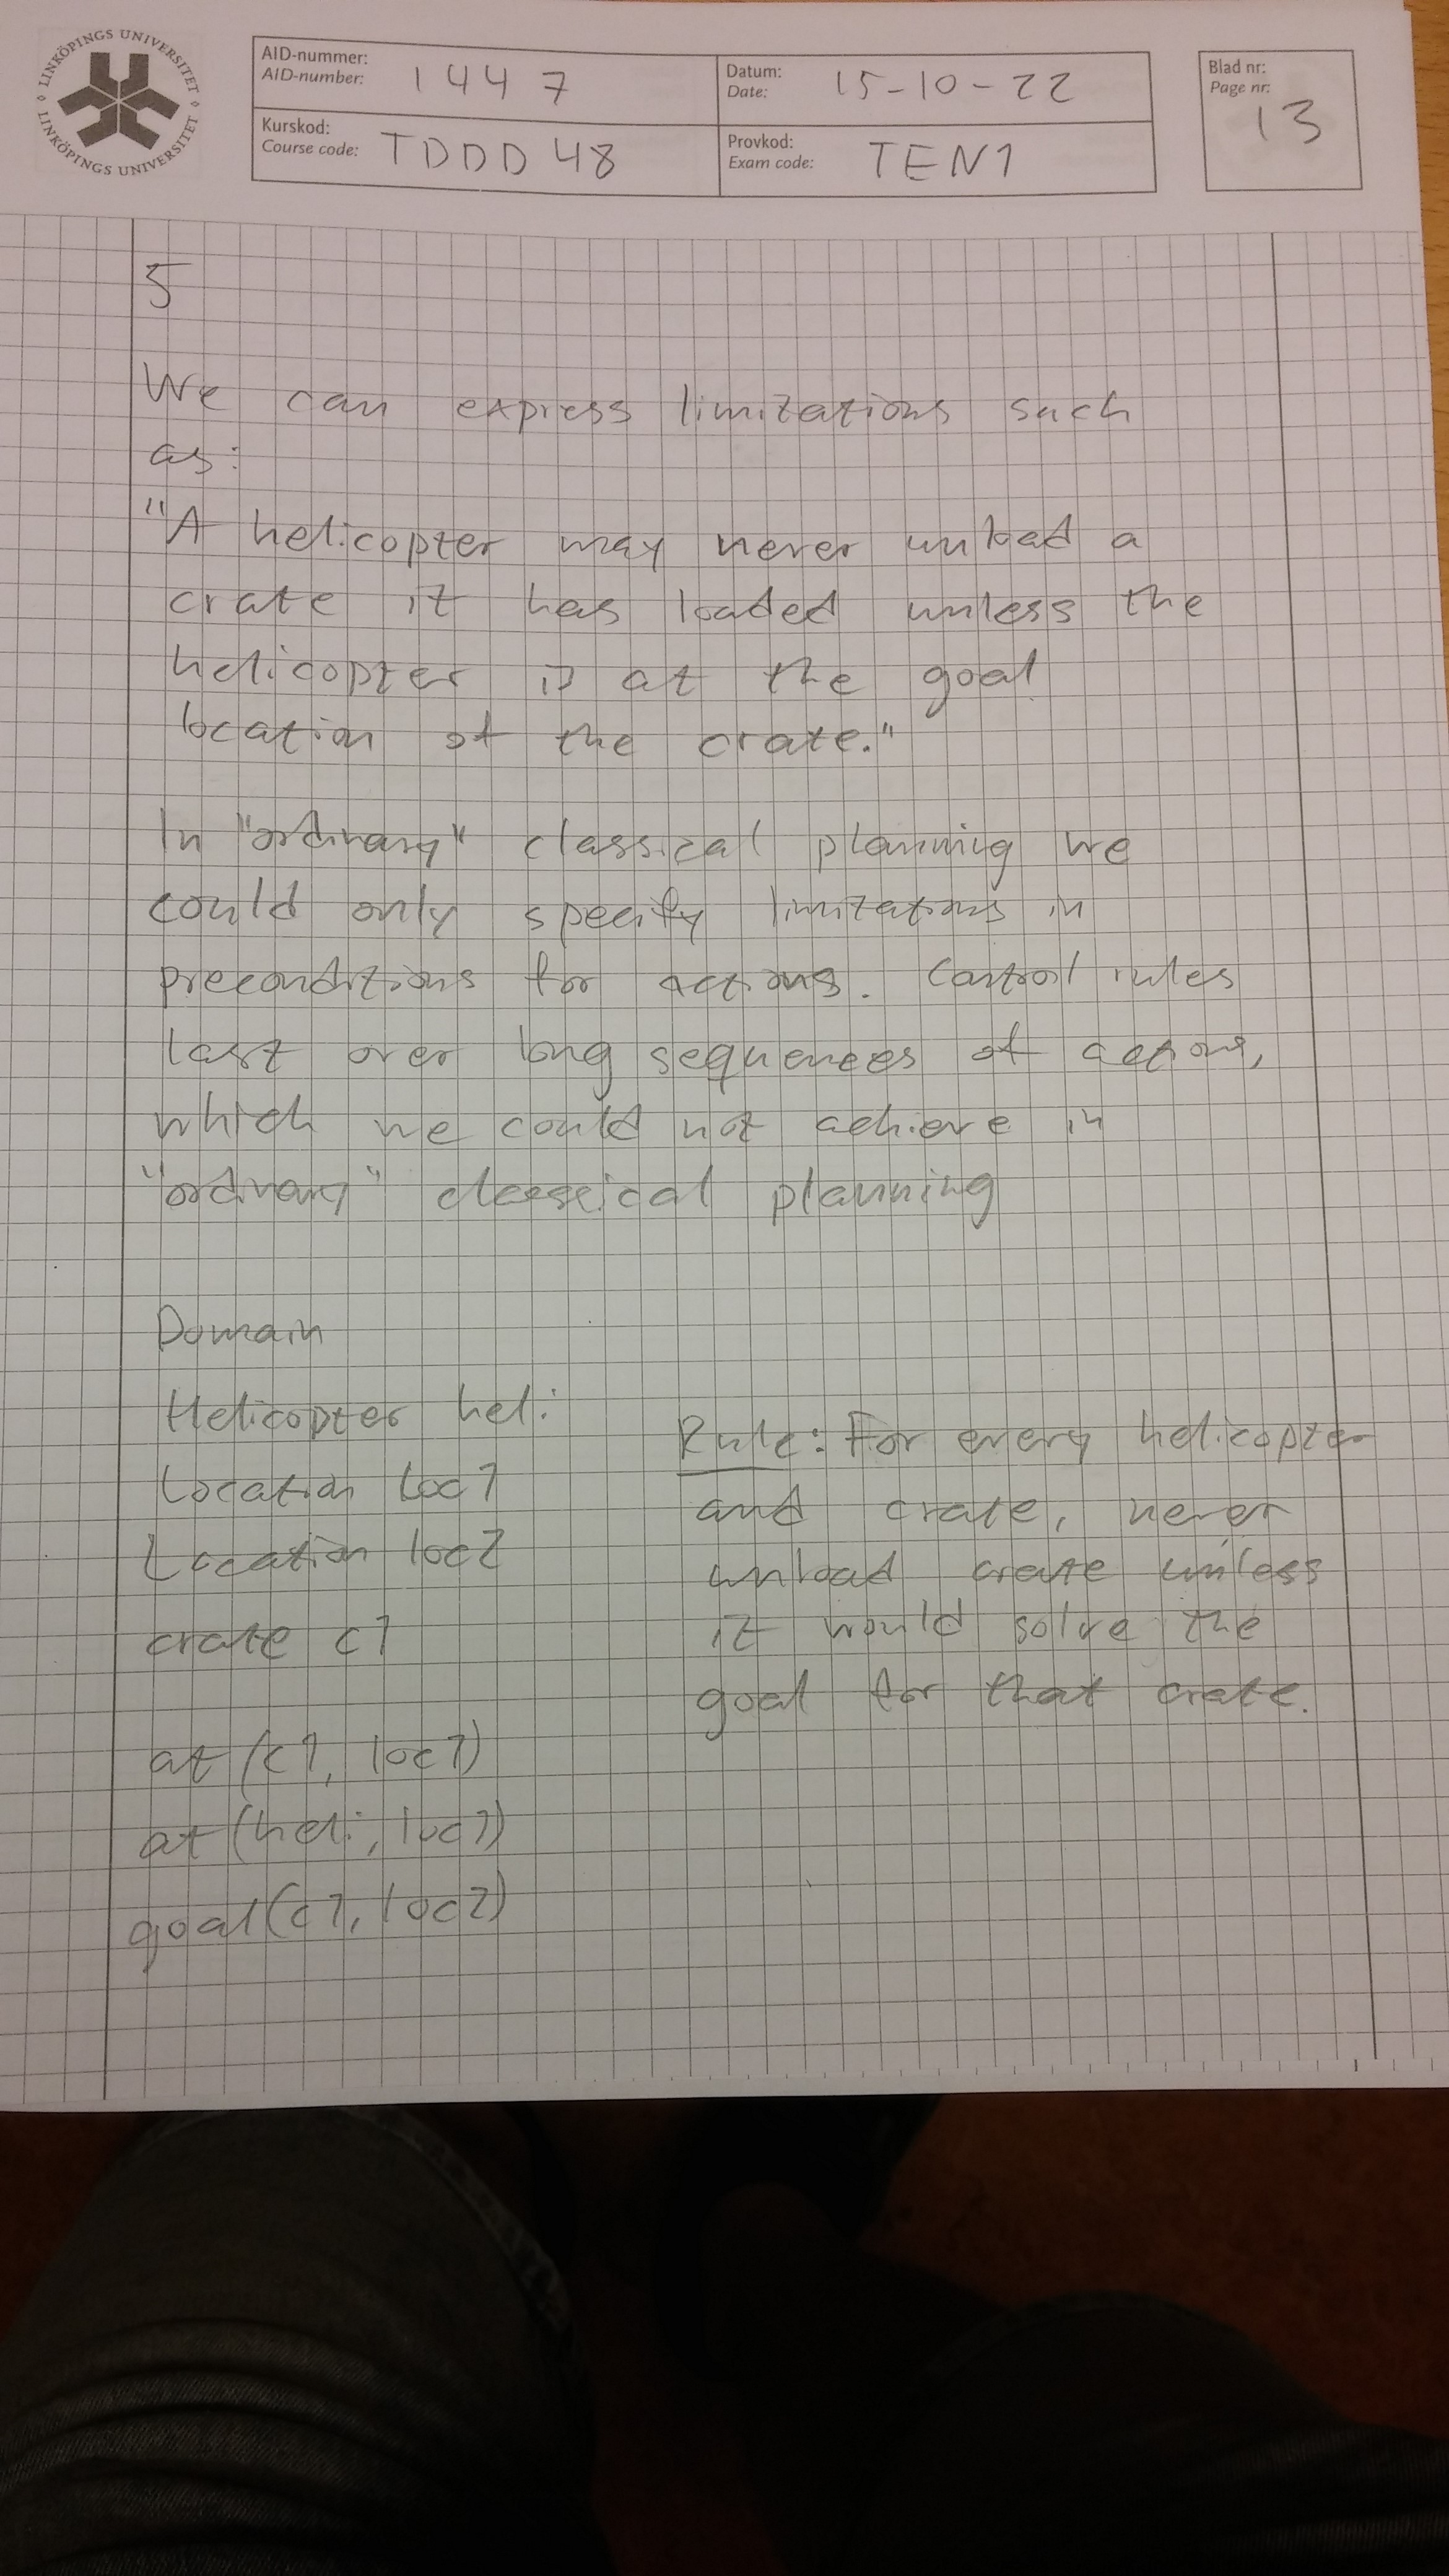 LINKÖPINGS UNIVERSITET
LINKÖPINGS UNIVERSITET
AID-nummer:
AID-number: 1447
Datum:
Date: 15-10-22
Blad nr:
Page nr:
13
Kurskod:
Course code: TDDD48
Provkod:
Exam code: TEN1
5
We can express limitations such
as:
"A helicopter may never unload a
crate it has loaded unless the
helicopter is at the goal
location of the crate."
In "ordinary" classical planning we
could only specify limitations in
preconditions for actions. Control rules
last over long sequences of actions,
which we could not achieve in
"ordinary" classical planning
Domain
Helicopter heli
Location loc1
Location loc2
crate c1
at (c1, loc1)
at (heli, loc1)
goal (c1, loc2)
Rule: For every helicopter
and crate, never
unload crate unless
it would solve the
goal for that crate.